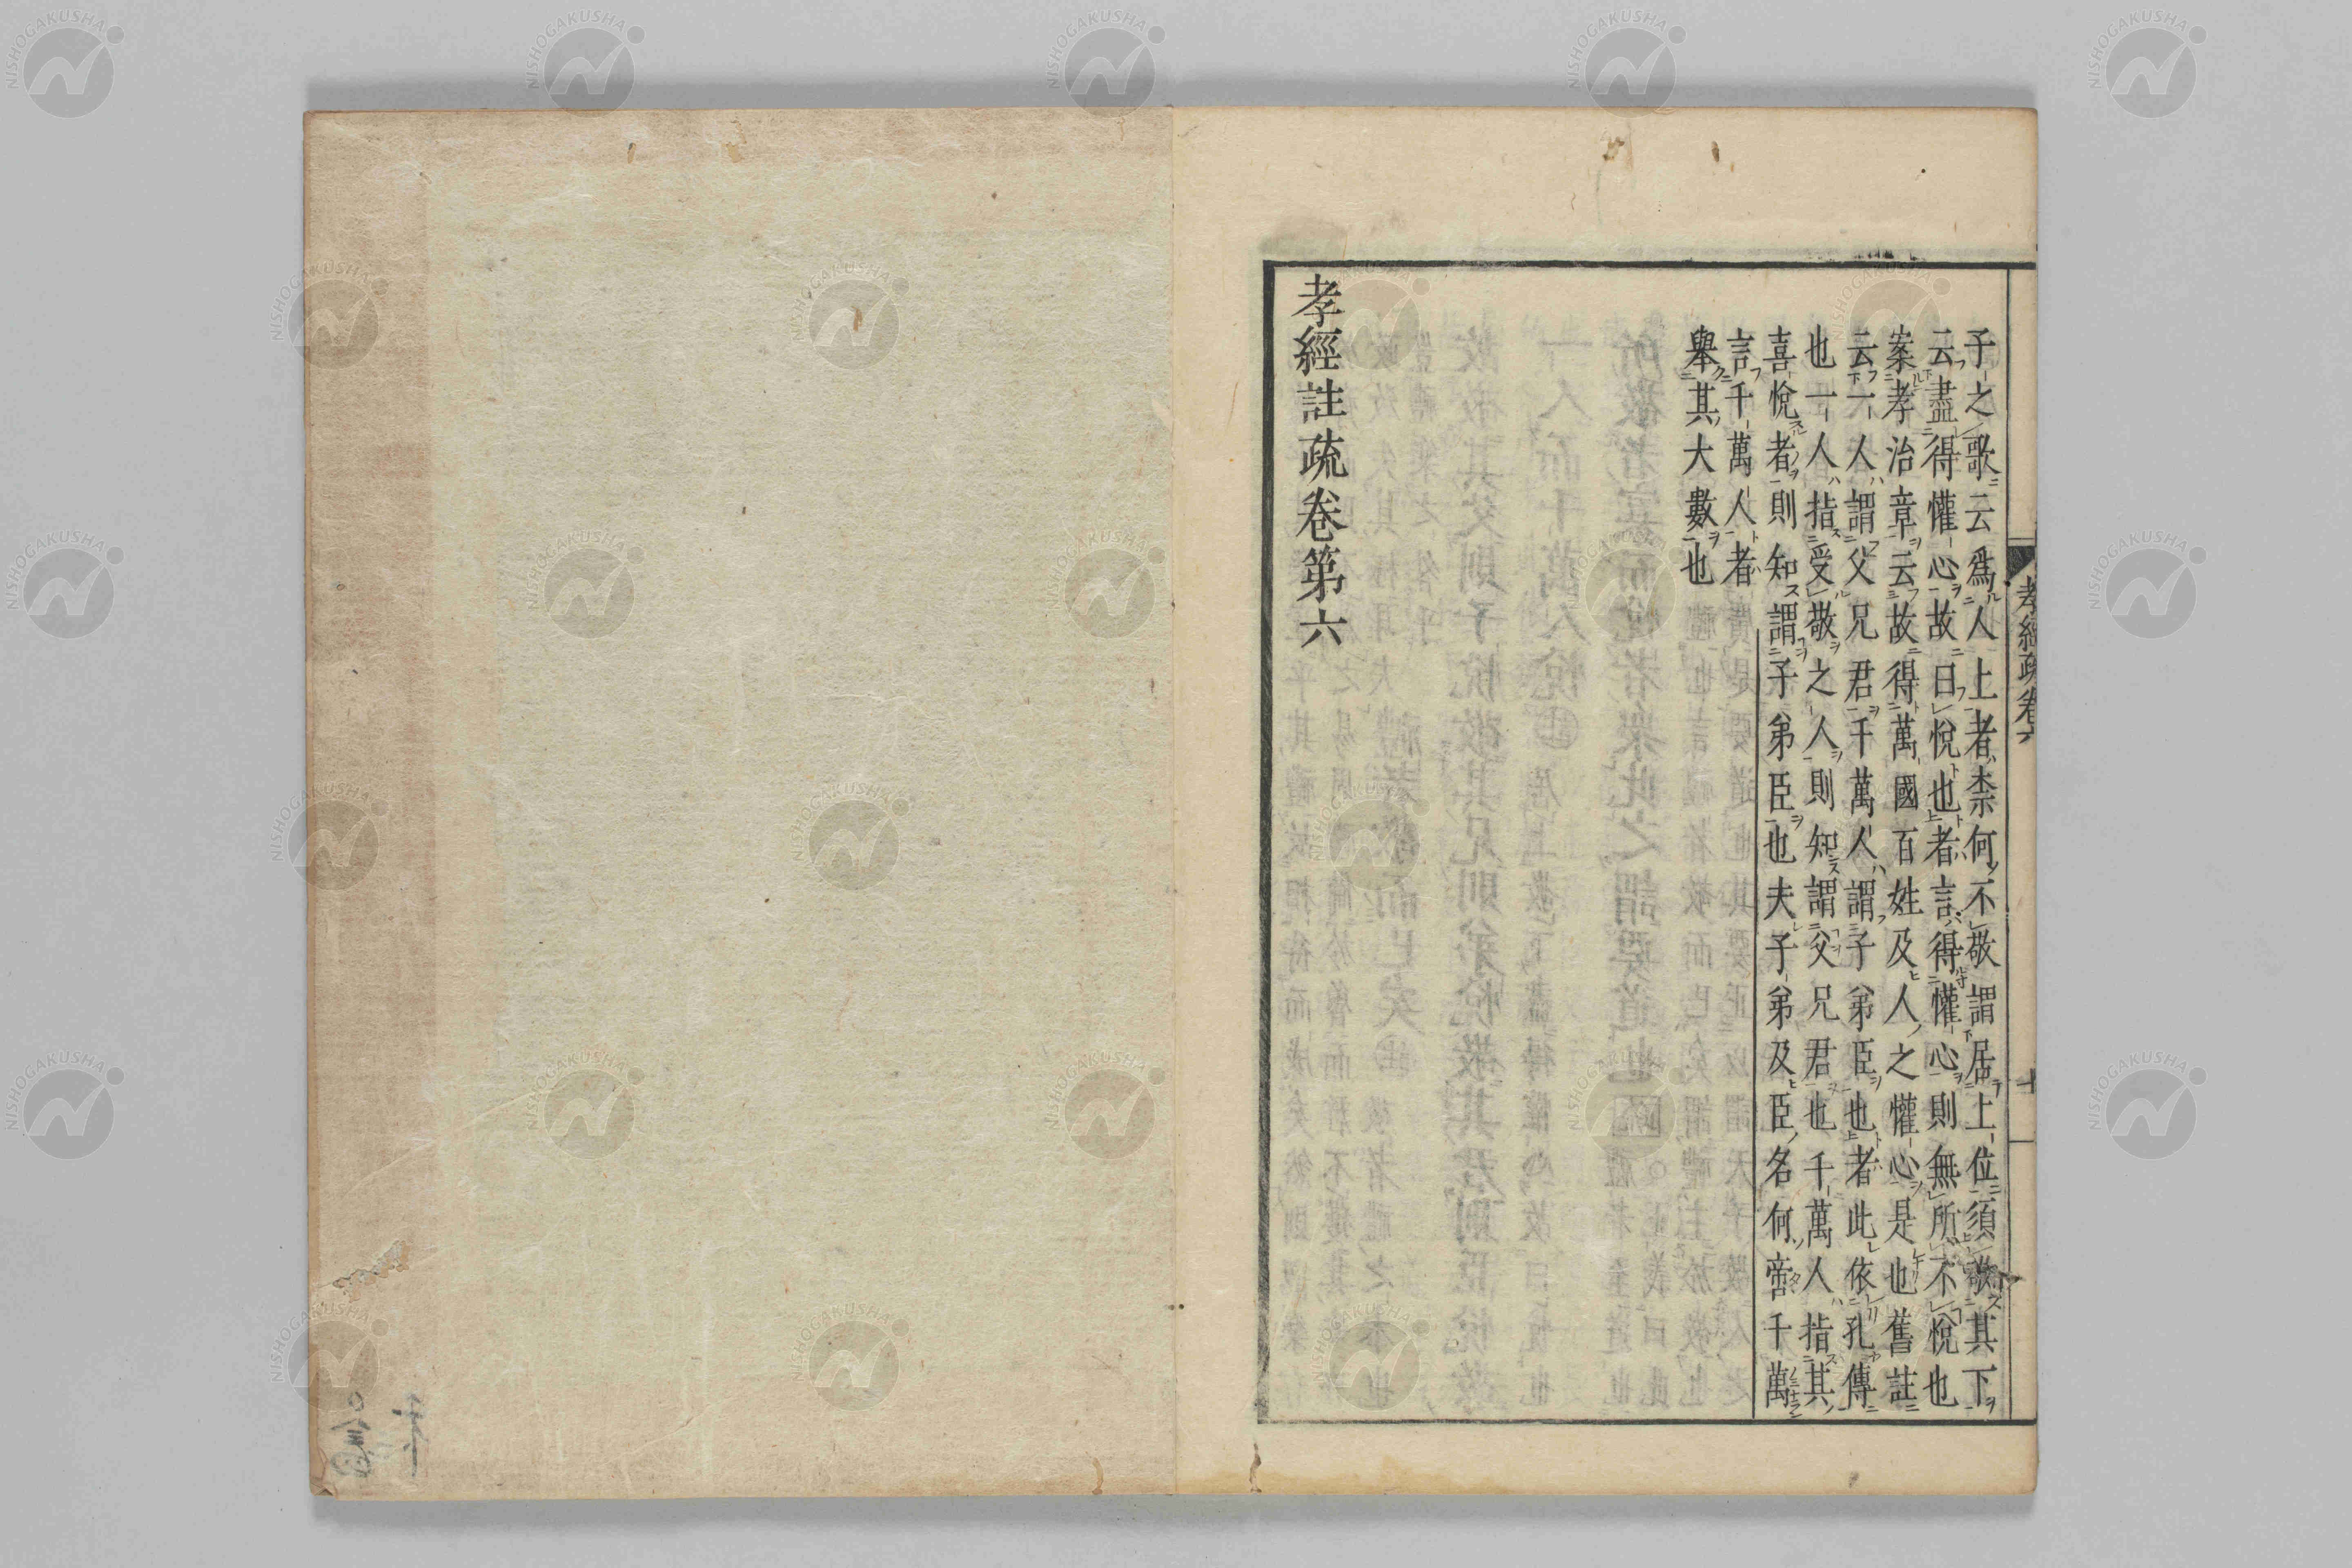 子之歌云爲人上者柰何不敬謂居上位須敬其下
云盡得懽心故曰悅也者言得懽心則無所不悅也
案孝治章云故得萬國百姓及人之懽心是也舊註
云一人謂父兄君千萬人謂子弟臣也者此依孔傳
也一人指受敬之人則知謂父兄君也千萬人指其
喜悅者則知謂子弟臣也夫子弟及臣名何啻千萬
言千萬人者
舉其大數也
孝經註疏卷第六
孝經疏卷六
NISHOGAKUSHA